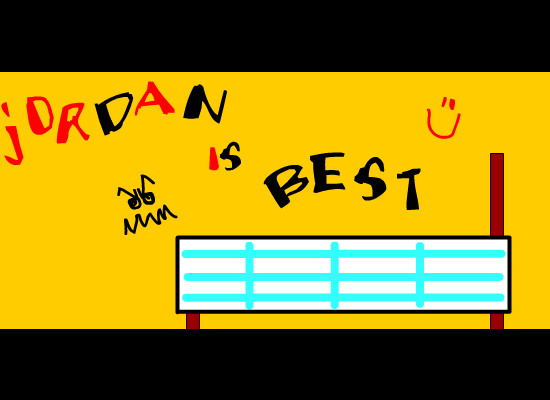 jORDAN
IS
BEST